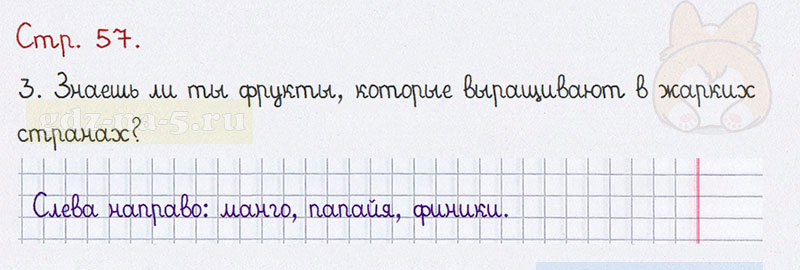 Стр. 57.
3. Знаешь ли ты фрукты, которые выращивают в жарких
gdz-na-5.ru
странах?
Слева направо: манго, папайя, финики.